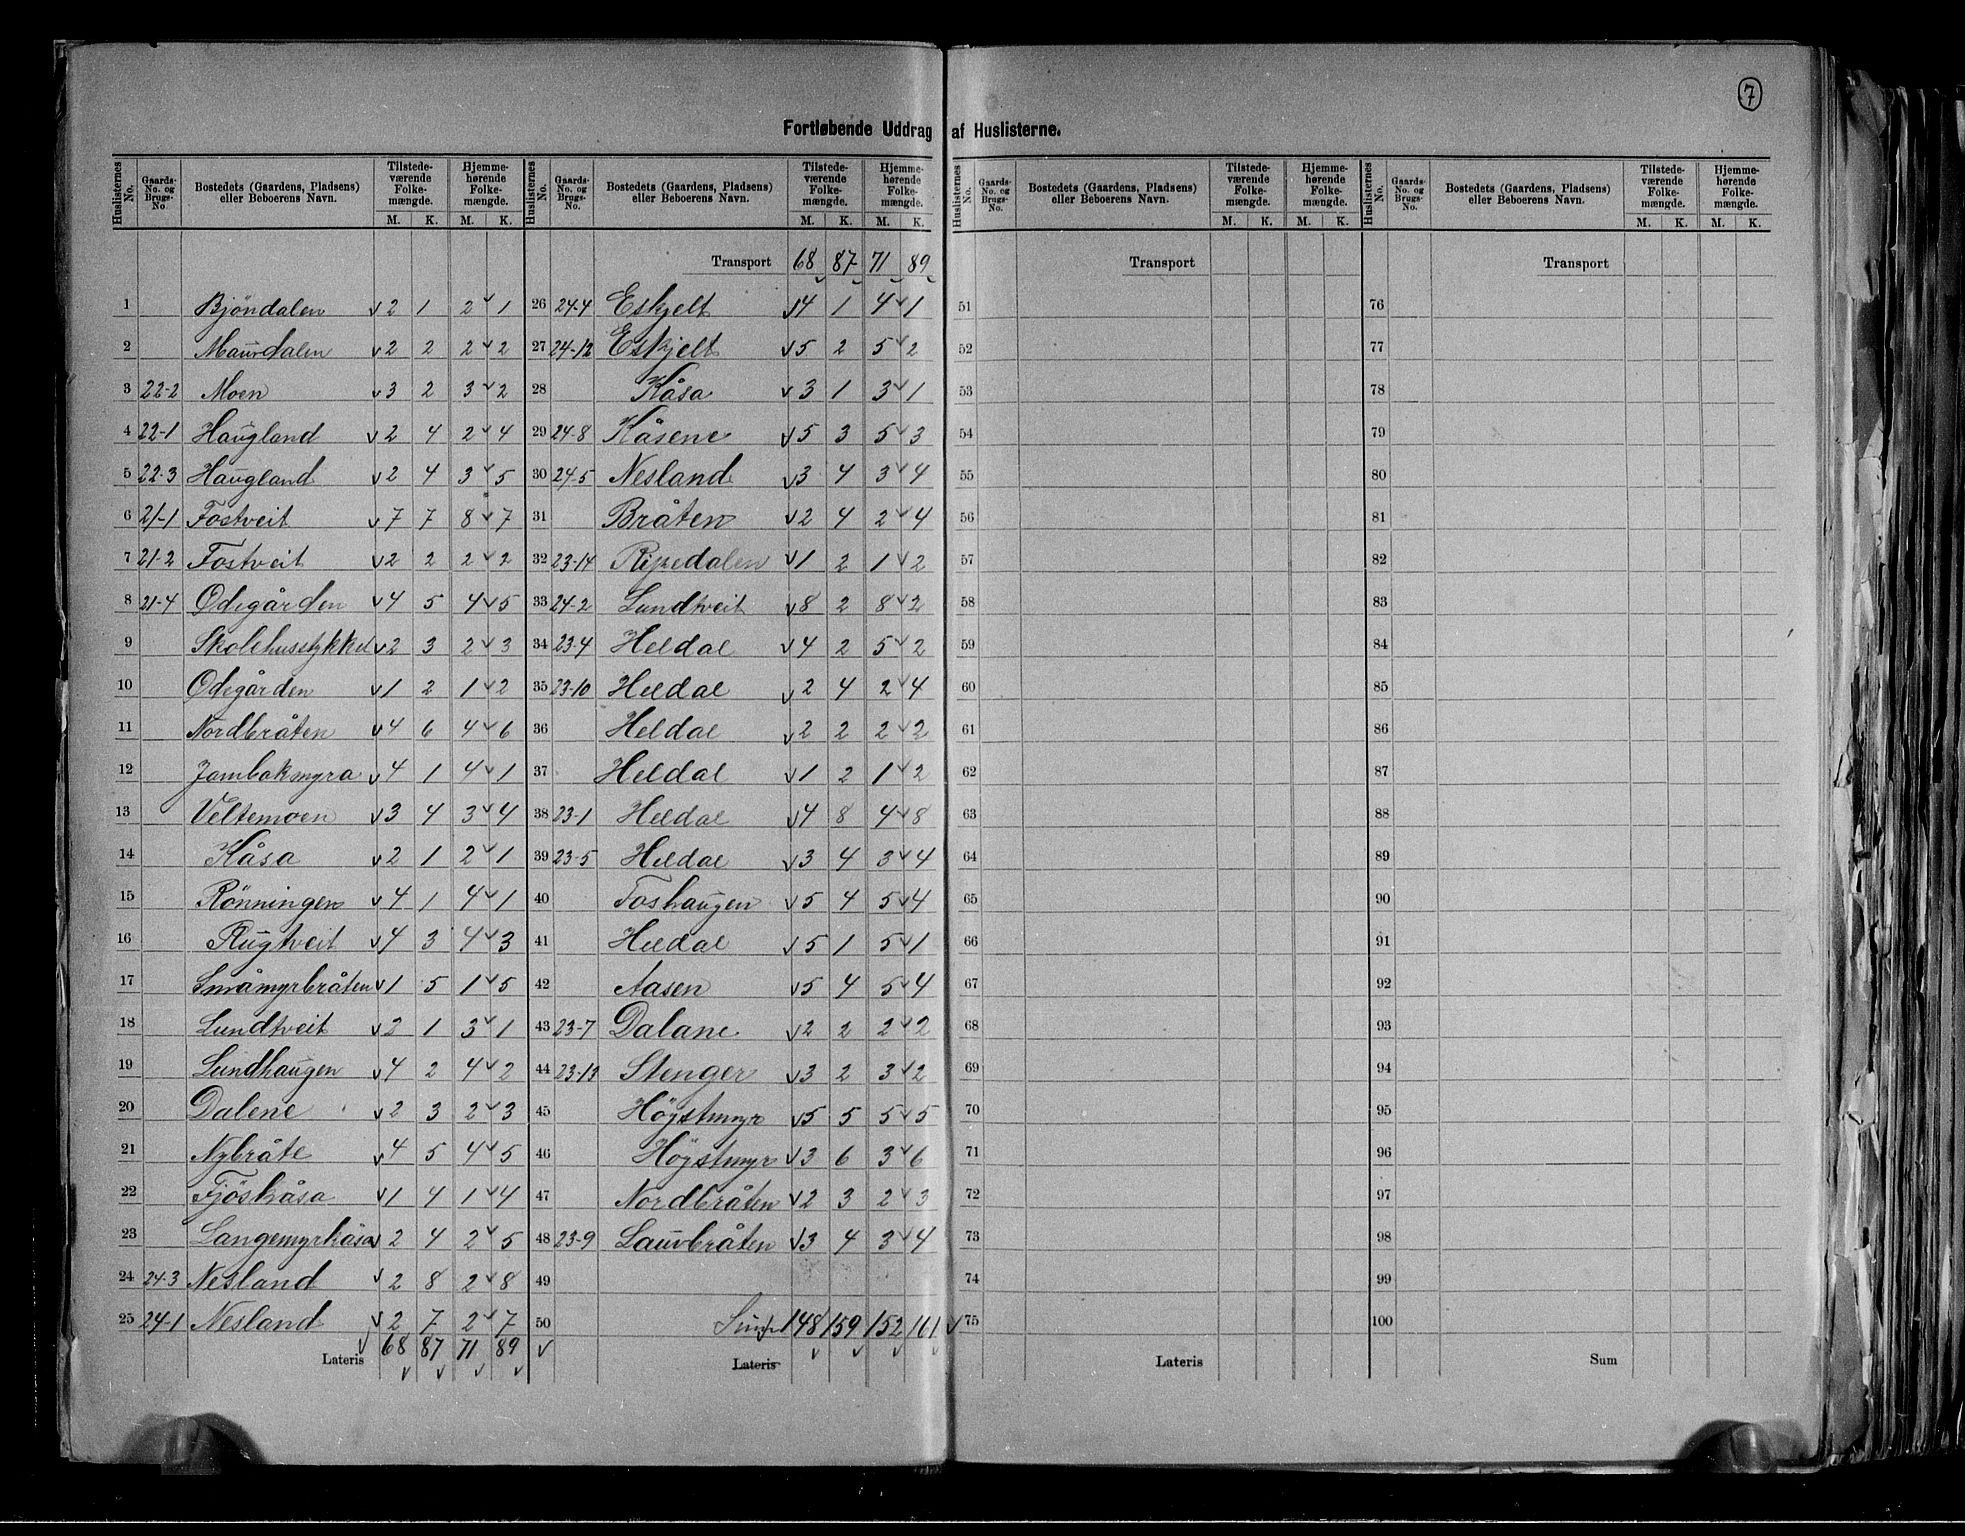 7
Fortløbende Uddrag af Huslisterne.
Huslisternes No. Gaards-No. og Brugs-No. Bostedets (Gaardens, Pladsens) eller Beboerens Navn. Tilstedeværende Folkemængde. M. K. Hjemmehørende Folkemængde. M. K.
1 Bjöndalen 2 1 2 1
2 Maurdalen 2 2 2 2
3 22-2 Moen 3 2 3 2
4 22-1 Haugland 2 4 2 4
5 22-3 Haugland 2 4 3 5
6 21-1 Fostveit 7 7 8 7
7 21-2 Fostveit 2 2 2 2
8 21-4 Ödegården 4 5 4 5
9 Skolehusstykket 2 3 2 3
10 Ödegården 1 2 1 2
11 Nordbråten 4 6 4 6
12 Jambakmyra 4 1 4 1
13 Veltemoen 3 4 3 4
14 Kåsa 2 1 2 1
15 Rönningen 4 1 4 1
16 Rugtveit 4 3 4 3
17 Småmyrbråten 1 5 1 5
18 Lundtveit 2 1 3 1
19 Lundhaugen 4 2 4 2
20 Dalene 2 3 2 3
21 Nybråte 4 5 4 5
22 Fjöskåsa 1 4 1 4
23 Langemyrkåsa 2 4 2 5
24 24-3 Nesland 2 8 2 8
25 24-1 Nesland 2 7 2 7
Lateris 68 87 71 89
Huslisternes No. Gaards-No. og Brugs-No. Bostedets (Gaardens, Pladsens) eller Beboerens Navn. Tilstedeværende Folkemængde. M. K. Hjemmehørende Folkemængde. M. K.
Transport 68 87 71 89
26 24-4 Eskjelt 4 1 4 1
27 24-12 Eskjelt 5 2 5 2
28 Kåsa 3 1 3 1
29 24-8 Kåsene 5 3 5 3
30 24-5 Nesland 3 4 3 4
31 Bråten 2 4 2 4
32 23-14 Ripedalen 1 2 1 2
33 24-2 Lundtveit 8 2 8 2
34 23-4 Heldal 4 2 5 2
35 23-10 Heldal 2 4 2 4
36 Heldal 2 2 2 2
37 Heldal 1 2 1 2
38 23-1 Heldal 4 8 4 8
39 23-5 Heldal 3 4 3 4
40 Foshaugen 5 4 5 4
41 Heldal 5 1 5 1
42 Aasen 5 4 5 4
43 23-7 Dalane 2 2 2 2
44 23-13 Stenger 3 2 3 2
45 Höjstmyr 5 5 5 5
46 Höjstmyr 3 6 3 6
47 Nordbråten 2 3 2 3
48 23-9 Lauvbråten 3 4 3 4
49
50 148 159 152 161
Lateris
Huslisternes No. Gaards-No. og Brugs-No. Bostedets (Gaardens, Pladsens) eller Beboerens Navn. Tilstedeværende Folkemængde. M. K. Hjemmehørende Folkemængde. M. K.
Transport
51
52
53
54
55
56
57
58
59
60
61
62
63
64
65
66
67
68
69
70
71
72
73
74
75
Lateris
Huslisternes No. Gaards-No. og Brugs-No. Bostedets (Gaardens, Pladsens) eller Beboerens Navn. Tilstedeværende Folkemængde. M. K. Hjemmehørende Folkemængde. M. K.
Transport
76
77
78
79
80
81
82
83
84
85
86
87
88
89
90
91
92
93
94
95
96
97
98
99
100
Sum